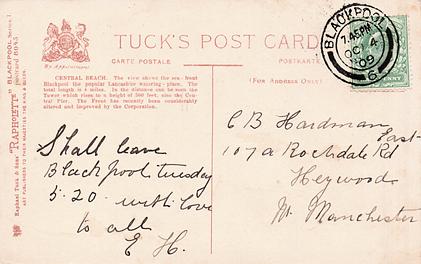 TUCK'S POST CARD
CARTE POSTALE
POSTKARTE
By Appointment
(For Address Only)
CENTRAL BEACH. The view shows the sea-front
Blackpool the popular Lancashire watering-place. The
total length is 4 miles. In the distance can be seen the
Tower which rises to a height of 500 feet, also the Cen-
tral Pier. The Front has recently been considerably
altered and improved by the Corporation.
Raphael Tuck & Sons' "RAPHOLETTE" BLACKPOOL Series I
ART PUBLISHERS TO THEIR MAJESTIES THE KING & QUEEN
BLACKPOOL
7.45 PM
OC 4
09
6
Shall leave
Blackpool tuesday
5-20. with love
to all
E H.
C B Hardman
107a Rochdale Rd East
Heywood
Nr. Manchester